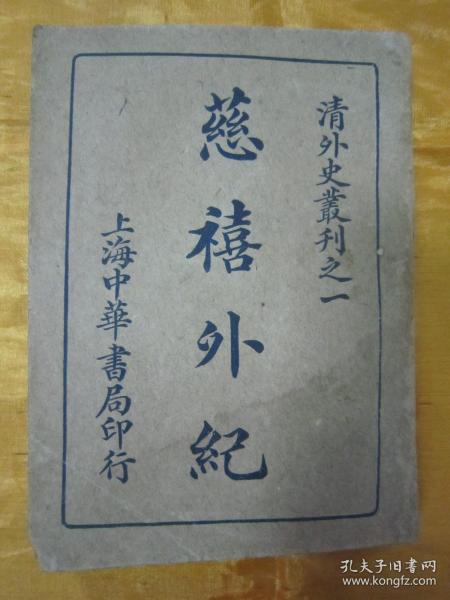 清外史叢刊之一
慈禧外紀
上海中華書局印行
孔夫子旧书网
www.kongfz.com